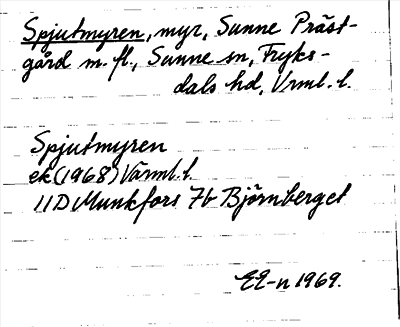 Spjutmyren, myr, Sunne Präst-
gård m. fl., Sunne sn, Fryks-
dals hd, Vrml. l.
Spjutmyren
ek (1968) Värml. l.
11D Munkfors 7b Björnberget
EE-n 1969.